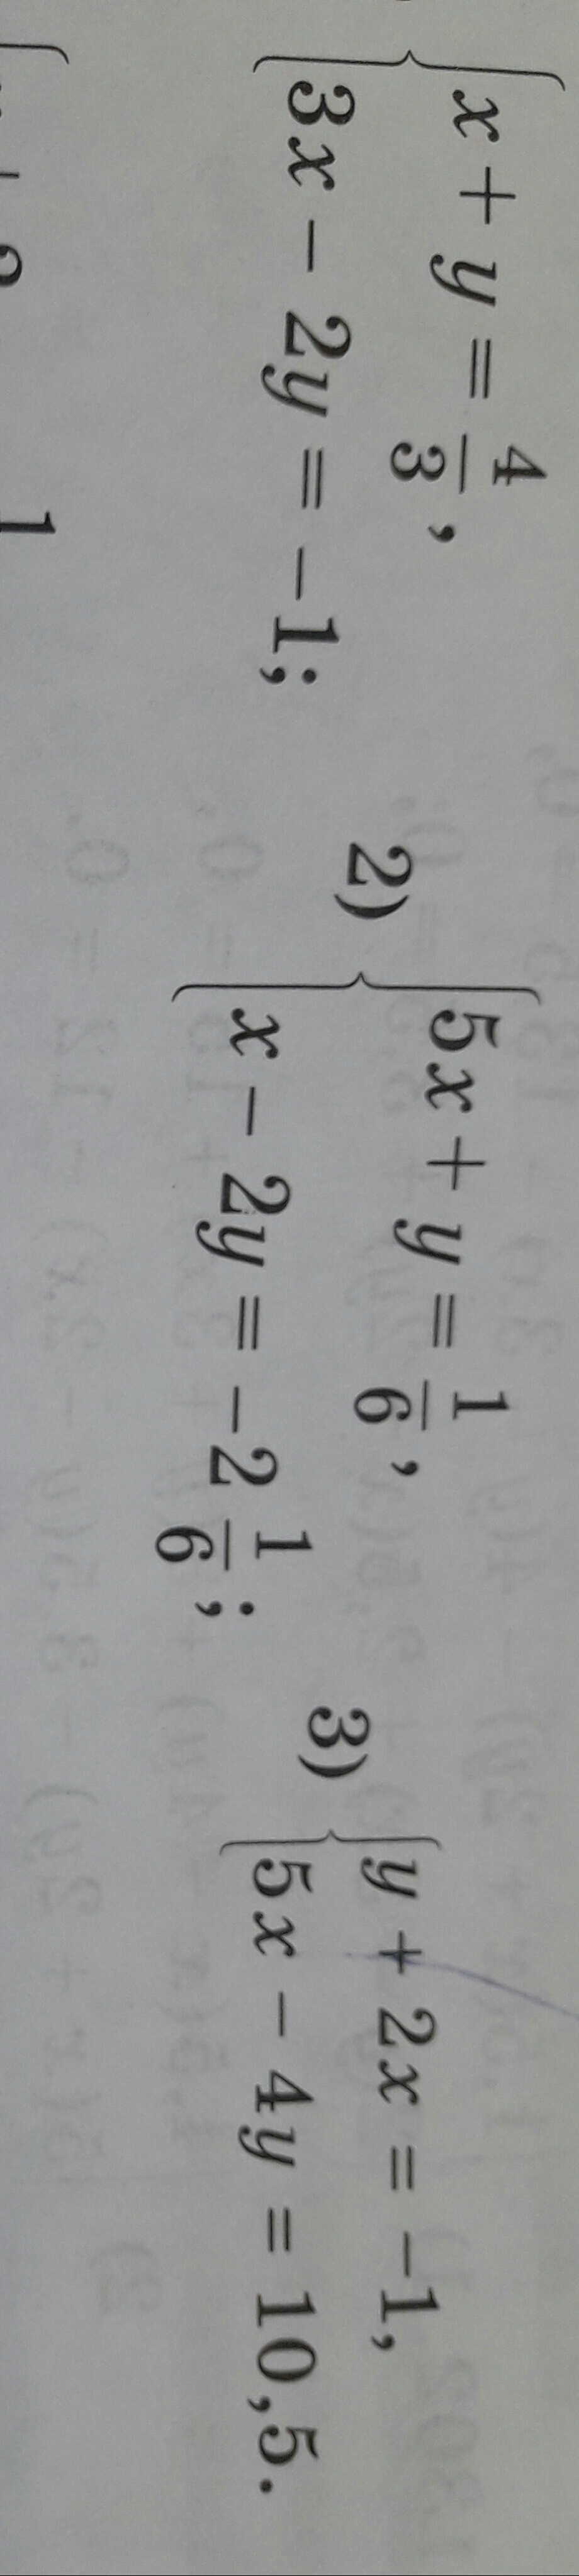 x + y = 4/3,
3x − 2y = −1;
2)
5x + y = 1/6,
x − 2y = −2 1/6;
3)
y + 2x = −1,
5x − 4y = 10,5.